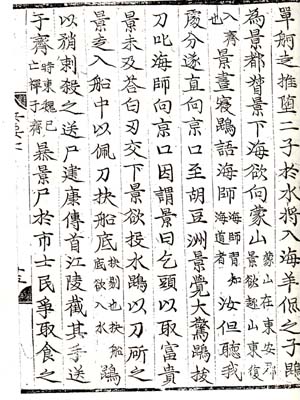 單舸走推墮二子於水將入海羊侃之子鵾
為景都督景下海欲向蒙山蒙山在東安郡景欲趨山東復
入齊也景晝寢鵾語海師海師習知海道者汝但聽我
處分遂直向京口至胡豆洲景覺大驚鵾拔
刀叱海師向京口因謂景曰乞頭以取富貴
景未及荅白刃交下景欲投水鵾以刀斫之
景走入船中以佩刀抉船底抉剔也抉船底欲入水鵾
以矟刺殺之送尸建康傳首江陵截其手送
于齊時東魏已亡禪于齊暴景尸於市士民爭取食之